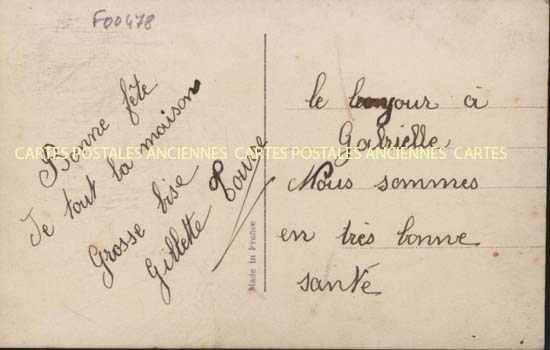 F00478
Bonne fête
Je tout la maison
Grosse bise
Gillette
le bonjour à
Gabrielle
Nous sommes
en très bonne
santé
Made in France
CARTES POSTALES ANCIENNES CARTES POSTALES ANCIENNES CARTES